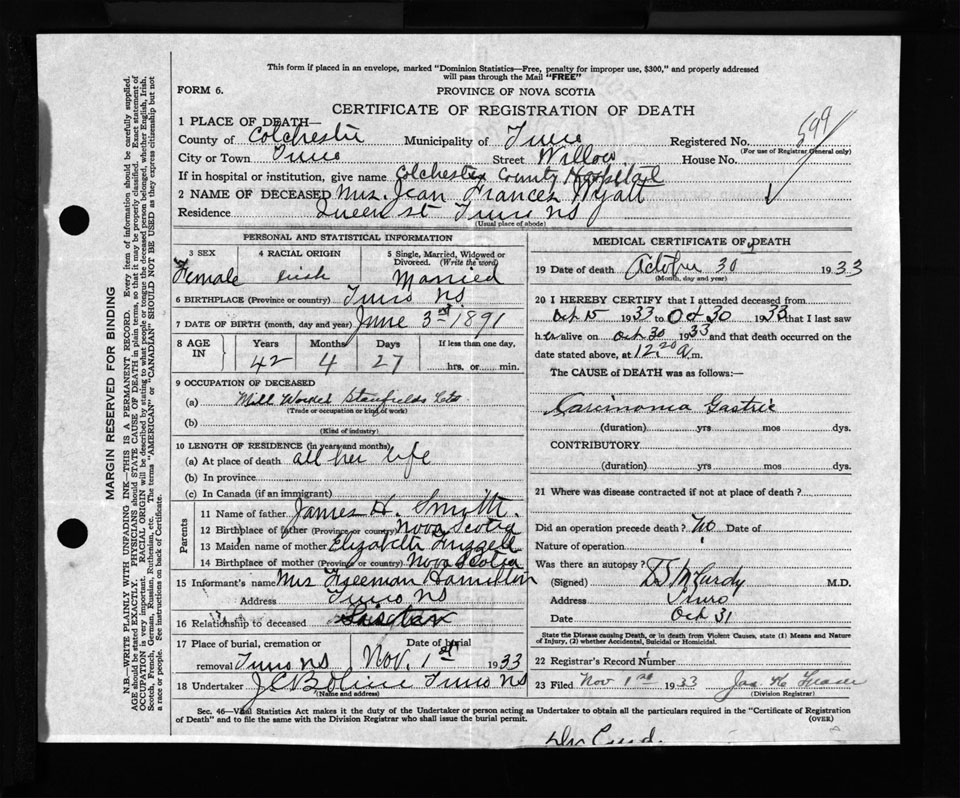 This form if placed in an envelope, marked "Dominion Statistics—Free, penalty for improper use, $300," and properly addressed
will pass through the Mail "FREE"
FORM 6.
PROVINCE OF NOVA SCOTIA
CERTIFICATE OF REGISTRATION OF DEATH
1 PLACE OF DEATH—
County of Colchester Municipality of Truro Registered No. 599
(For use of Registrar General only)
City or Town Truro Street Willow House No.
If in hospital or institution, give name Colchester County Hospital
2 NAME OF DECEASED Mrs. Jean Frances Wyatt
Residence Queen St Truro NS
(Usual place of abode)
PERSONAL AND STATISTICAL INFORMATION
3 SEX 4 RACIAL ORIGIN 5 Single, Married, Widowed or Divorced. (Write the word)
Female Irish Married
6 BIRTHPLACE (Province or country) Truro NS
7 DATE OF BIRTH (month, day and year) June 3rd 1891
8 AGE IN Years Months Days If less than one day,
42 4 27 hrs. or min.
9 OCCUPATION OF DECEASED
(a) Mill Worker Stanfields Ltd
(Trade or occupation or kind of work)
(b)
(Kind of industry)
10 LENGTH OF RESIDENCE (in years and months)
(a) At place of death all her life
(b) In province
(c) In Canada (if an immigrant)
Parents
11 Name of father James H. Smyth.
12 Birthplace of father (Province or country) Nova Scotia
13 Maiden name of mother Elizabeth
14 Birthplace of mother (Province or country) Nova Scotia
15 Informant's name Mrs Freeman Hamilton
Address Truro NS
16 Relationship to deceased
17 Place of burial, cremation or Date of burial
removal Truro NS Nov. 1st 1933
18 Undertaker Truro NS
(Name and address)
MEDICAL CERTIFICATE OF DEATH
19 Date of death October 30 1933
(Month, day and year)
20 I HEREBY CERTIFY that I attended deceased from
Oct 15 1933 to Oct 30 1933 that I last saw
her alive on Oct 30 1933 and that death occurred on the
date stated above, at 12.20 a m.
The CAUSE of DEATH was as follows:—
Carcinoma Gastric
(duration) yrs mos dys.
CONTRIBUTORY
(duration) yrs mos dys.
21 Where was disease contracted if not at place of death?
Did an operation precede death? No Date of
Nature of operation
Was there an autopsy?
(Signed) McCurdy M.D.
Address Truro
Date Oct 31
State the Disease causing Death, or in death from Violent Causes, state (1) Means and Nature
of Injury, (2) whether Accidental, Suicidal or Homicidal.
22 Registrar's Record Number
23 Filed Nov 1st 1933 Jas. H. Fraser
(Division Registrar)
Sec. 46—Vital Statistics Act makes it the duty of the Undertaker or person acting as Undertaker to obtain all the particulars required in the "Certificate of Registration
of Death" and to file the same with the Division Registrar who shall issue the burial permit.
(OVER)
MARGIN RESERVED FOR BINDING
N.B.—WRITE PLAINLY WITH UNFADING INK—THIS IS A PERMANENT RECORD. Every item of information should be carefully supplied.
AGE should be stated EXACTLY. PHYSICIANS should STATE CAUSE OF DEATH in plain terms, so that it may be properly classified. Exact statement of
OCCUPATION is very important. RACIAL ORIGIN will be described by stating to what people or tongue the deceased person belonged, whether English, Irish,
Scotch, French, German, Russian, Ruthenian, etc. The terms "AMERICAN" or "CANADIAN" SHOULD NOT BE USED as they express citizenship but not
a race or people. See instructions on back of Certificate.